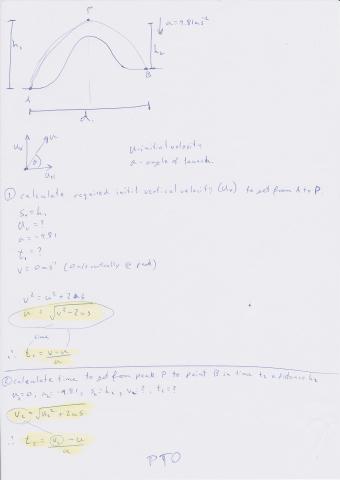 P
a=9.81ms⁻²
h₁
h₂
B
A
d.
uᵥ
u
θ
u_H
u-initial velocity
a - angle of launch.
① calculate required initial vertical velocity (uᵥ) to get from A to P.
sᵥ=h₁
uᵥ=?
a=-9.81
t₁=?
v=0ms⁻¹ (0 vertically @ peak)
v²=u²+2as
u = √v²-2as
time
∴ t₁ = v-u
a
② calculate time to get from peak P to point B in time t₂ a distance h₂
u₂=0, a=-9.81, s₂=h₂, v₂=?, t₂=?
v₂=√u₂²+2as
∴ t₂ = v₂-u
a
PTO